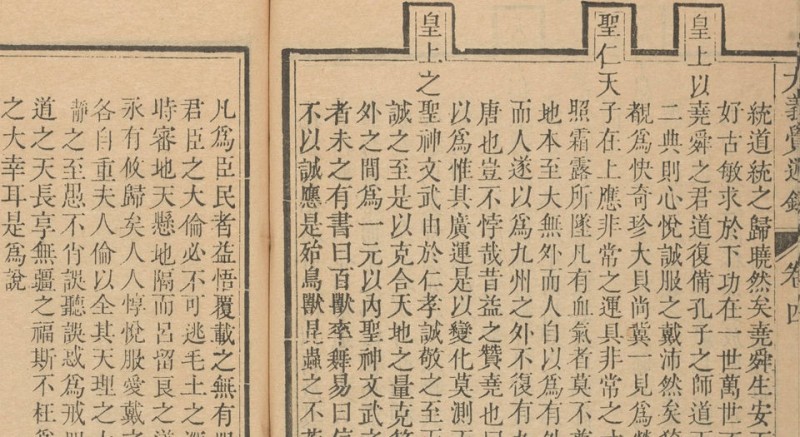 大義覺迷錄 卷四
統道統之歸曉然矣堯舜生安
好古敏求於下功在一世萬世
皇上以堯舜之君道復備孔子之師道
二典則心悅誠服之戴沛然矣
覩為快奇珍大貝尚冀一見為
聖仁天子在上應非常之運具非常之
照霜露所墜凡有血氣者莫不
地本至大無外而人自以為有外
而人遂以為九州之外不復有九
唐也豈不悖哉昔益之贊堯也曰
以為惟其廣運是以變化莫測
皇上之聖神文武由於仁孝誠敬之至
誠之至是以克合天地之量克
外之間為一元以內聖神文武之
者未之有書曰百獸率舞易曰信
不以誠應是殆鳥獸昆蟲之不若
凡為臣民者益悟覆載之無有
君臣之大倫必不可逃毛土之
時審地天懸地隔而呂留良之
永有攸歸矣人人惇悅服愛戴之
各自重夫人倫以全其天理之
靜之至愚不肖誤聽誤惑為戒
道之天長享無疆之福斯不枉為
之大幸耳是為說